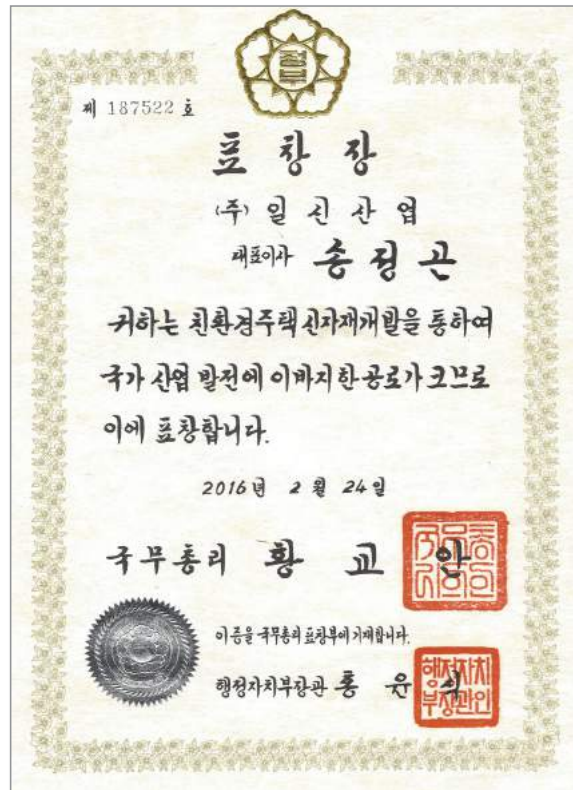 정부
제 187522 호
표창장
(주) 일신산업
대표이사 송정곤
귀하는 친환경주택 신자재개발을 통하여
국가 산업 발전에 이바지한 공로가 크므로
이에 표창합니다.
2016년 2월 24일
국무총리 황교안
이 증을 국무총리 표창부에 기재합니다.
행정자치부장관 홍윤식
행정자치
부장관인